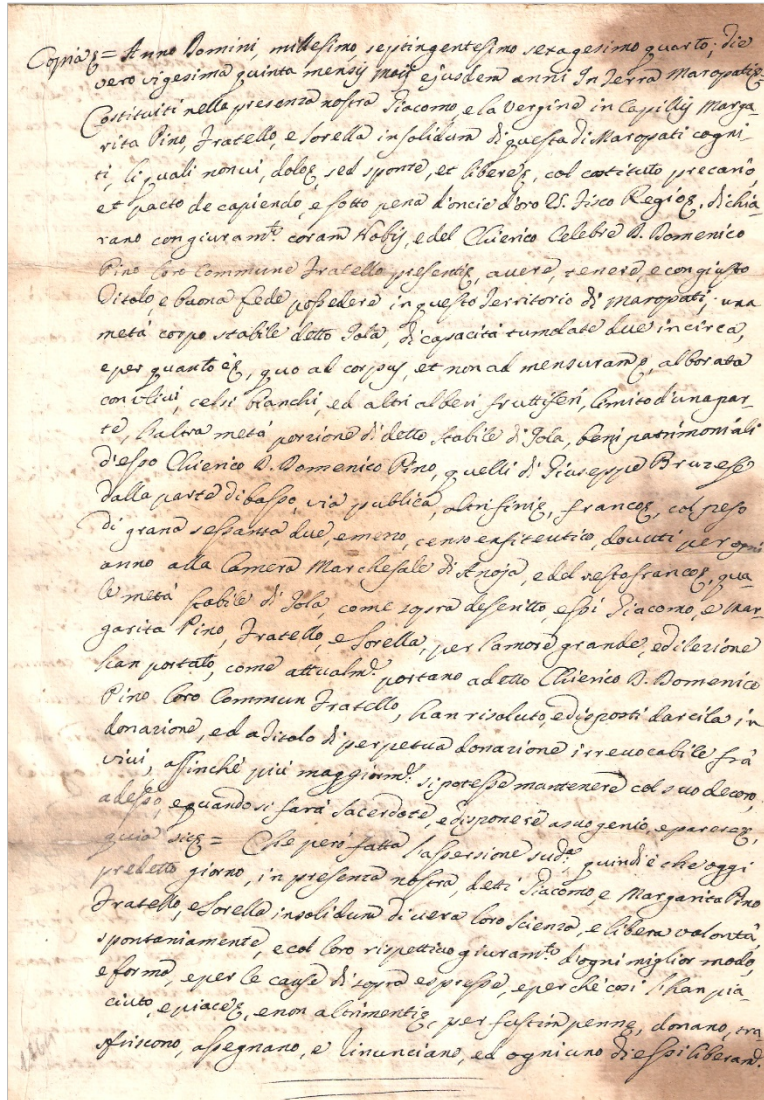 Copia &= Anno Domini, millesimo septingentesimo sexagesimo quarto; die
vero vigesima quinta mensis maii ejusdem anni In terra Maropati &
Costituiti nella presenza nostra Giacomo, e la Vergine in Capillis Marga-
rita Pino, Fratello, e Sorella insolidum di questa di Maropati cogni-
ti, li quali non vi, dolo &, sed sponte, et libere &, col costituto precario,
et pacto de capiendo, e sotto pena d'oncie d'oro 25. Fisco Regio &, dichia-
rano con giuram.to coram Nobis, e del Chierico Celebe D. Domenico
Pino loro Commune Fratello presenti &, avere, tenere, e con giusto
Titolo, e buona fede possedere in questo Territorio di Maropati, una
metà corpo stabile detto Jola, di capacità tumolate due incirca,
e per quanto è &, quo ad corpus, et non ad mensuram &, alborata
con olivi, celsi bianchi, ed altri alberi fruttiferi, limito d'una par-
te, l'altra metà porzione di detto stabile di Jola, beni patrimoniali
d'esso Chierico D. Domenico Pino, quelli di Giuseppe Bruzese
dalla parte di basso, via publica, altri fini &, franco &, col peso
di grana sessanta due, e meno, censo enfiteutico, dovuti per ogni
anno alla Camera Marchesale di Anoja, e del resto franco &, qua-
le metà stabile di Jola, come sopra descritto, essi Giacomo, e Mar-
garita Pino, Fratello, e Sorella, per l'amore grande, e dilezione
han portato, come attualm.te portano a detto Chierico D. Domenico
Pino loro Commun Fratello, han risoluto, e disposti darcila in
donazione, ed a titolo di perpetua donazione irrevocabile frà
vivi, affinché più maggiorm.te si potesse mantenere col suo decoro,
adesso, e quando si farà Sacerdote, e disponere a suo genio, e parere &,
quia sic &= Che però fatta l'assersione sud.a, quindi è che oggi
predetto giorno, in presenza nostra, detti Giacomo, e Margarita Pino
Fratello, e Sorella insolidum di vera loro Scienza, e libera volontà,
spontaniamente, e col loro rispettivo giuram.to d'ogni miglior modo,
e forma, e per le cause di sopra espresse, e perchè così l'han pia-
ciuto, e piace &, e non altrimenti &, per fustim penne, donano, tra-
sferiscono, assegnano, e rinunciano, ed ogni uno di essi liberam.te